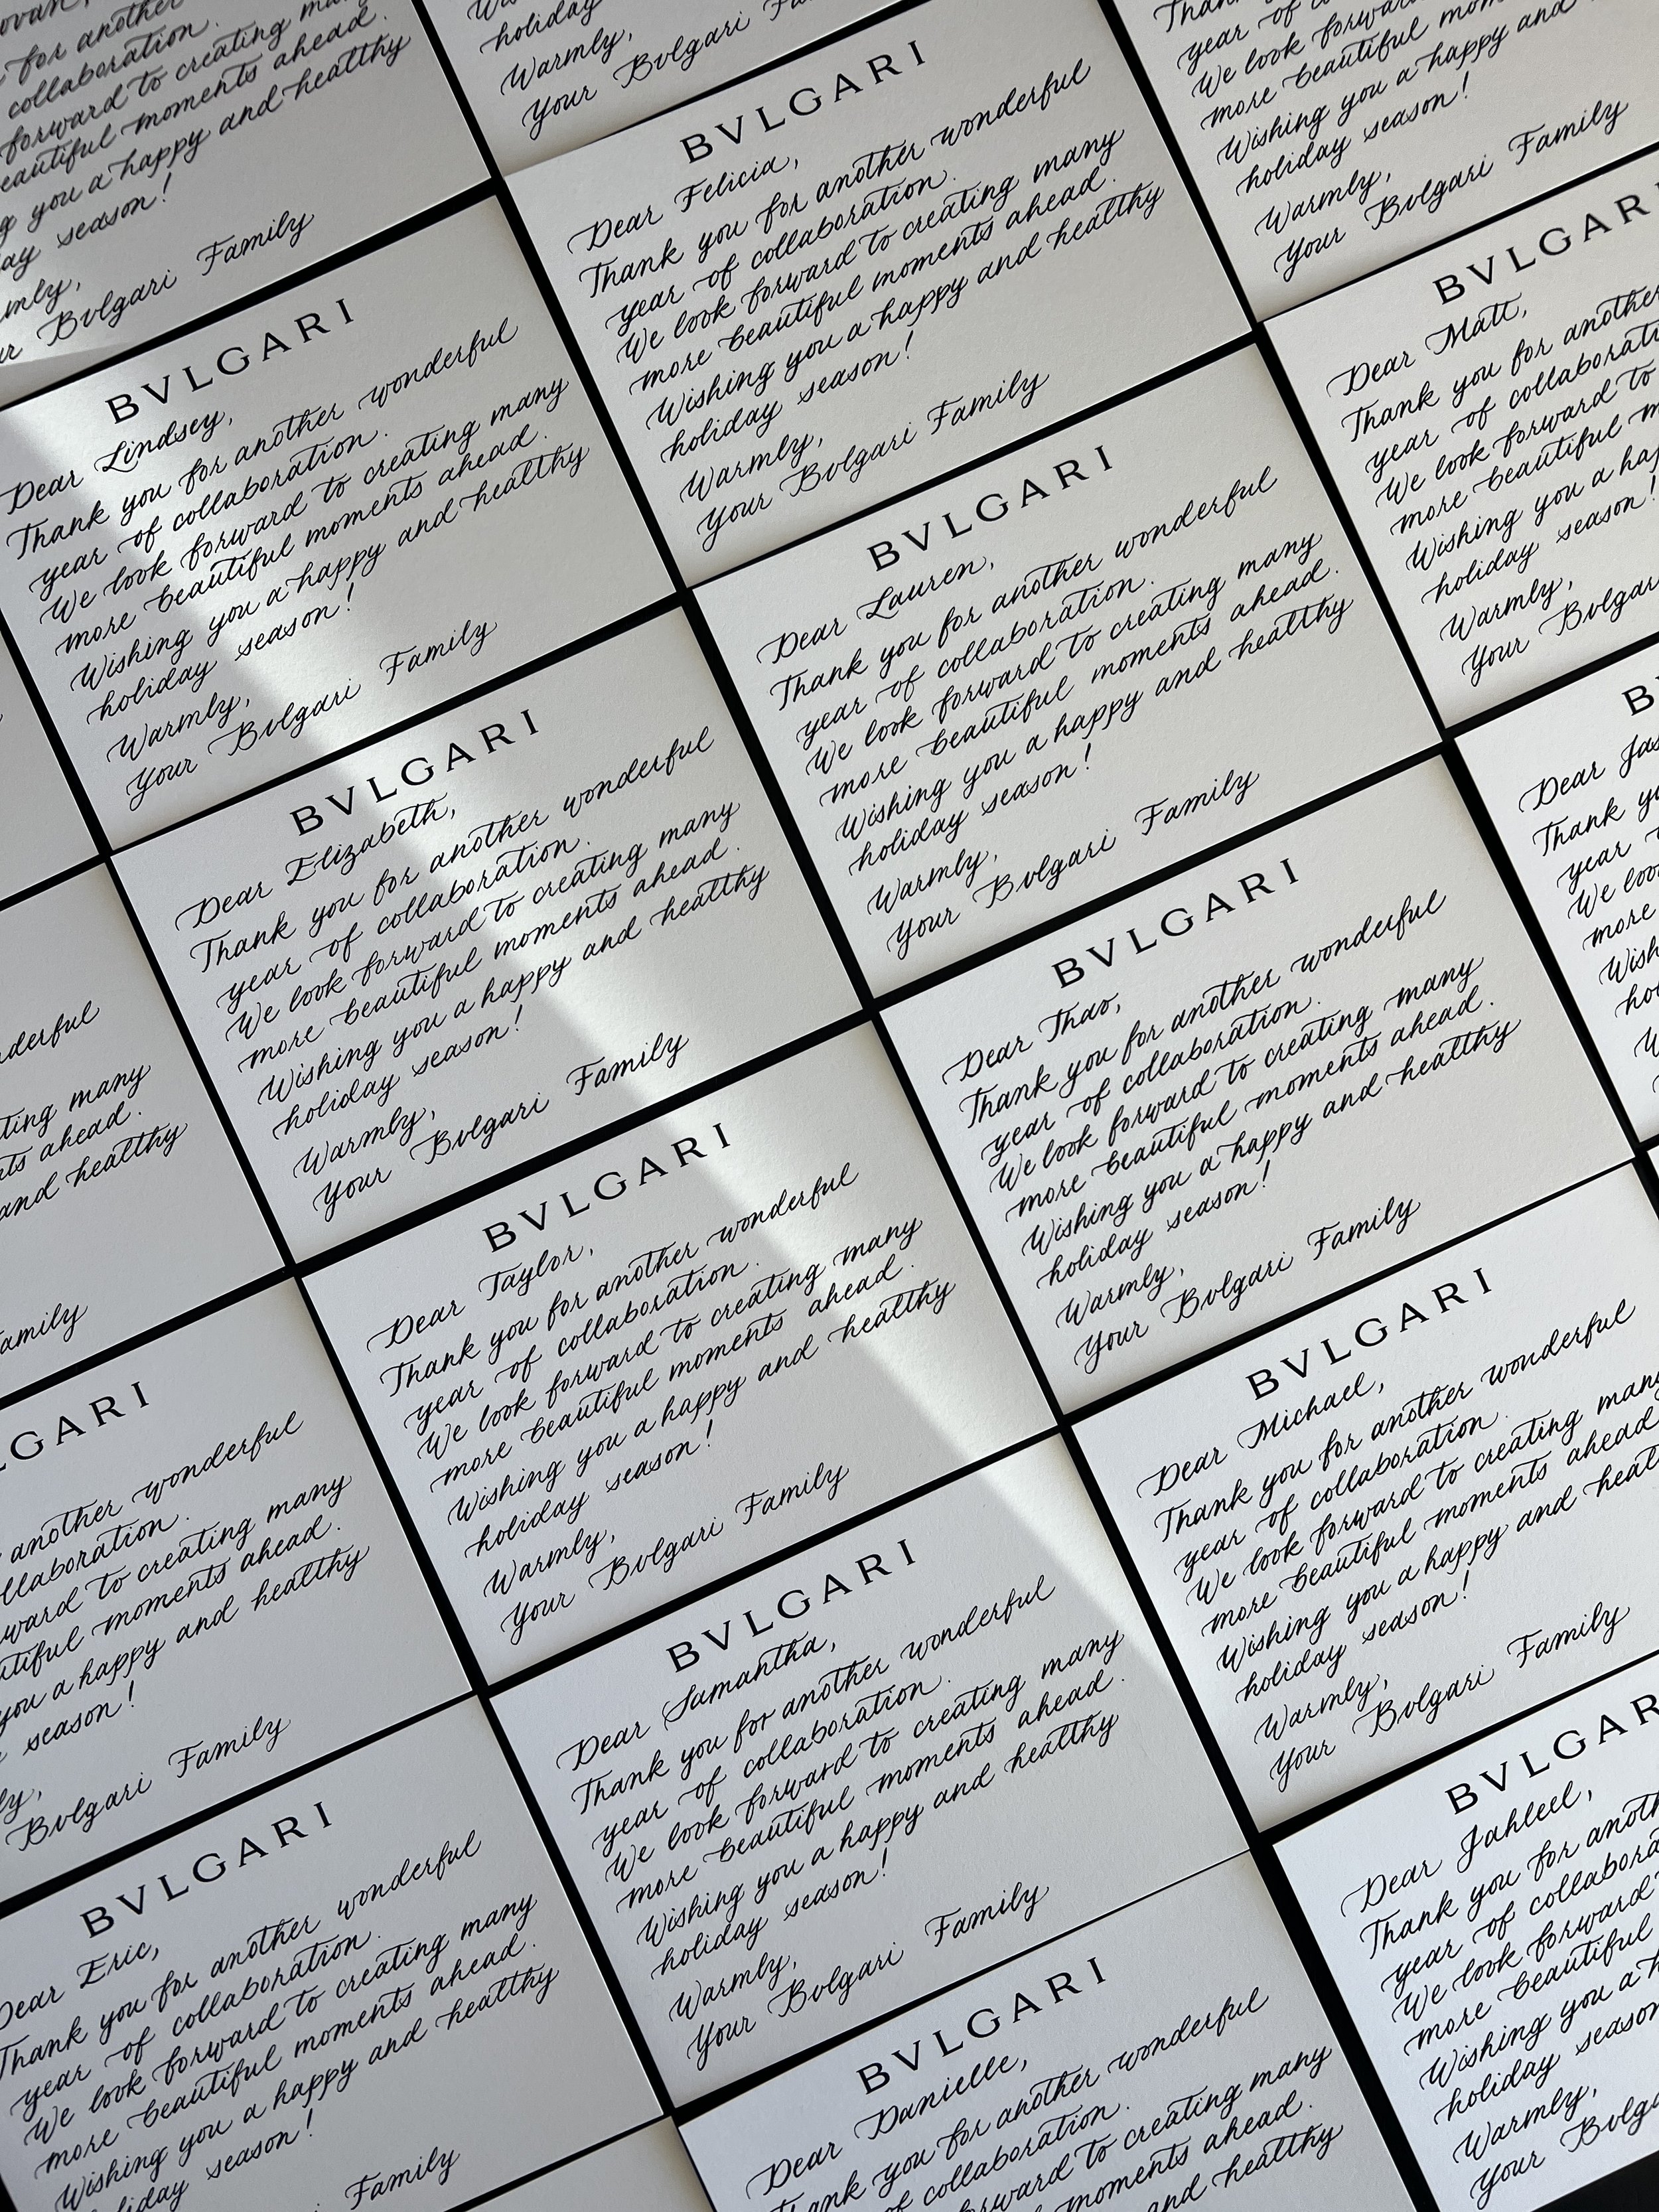 for another
collaboration.
forward to creating
beautiful moments ahead.
you a happy and healthy
season!
Bvlgari Family
holiday
Warmly,
Your Bvlgari
year of
We look forward
more beautiful
Wishing you a happy and
holiday season!
Warmly,
Your Bvlgari Family
BVLGARI
Dear Lindsey,
Thank you for another wonderful
year of collaboration.
We look forward to creating many
more beautiful moments ahead.
Wishing you a happy and healthy
holiday season!
Warmly,
Your Bvlgari Family
BVLGARI
Dear Felicia,
Thank you for another wonderful
year of collaboration.
We look forward to creating many
more beautiful moments ahead.
Wishing you a happy and healthy
holiday season!
Warmly,
Your Bvlgari Family
BVLGAR
Dear Matt,
Thank you for another
year of
We look forward to
more beautiful
Wishing you a
holiday season!
Warmly,
Your
BVLGARI
Dear Elizabeth,
Thank you for another wonderful
year of collaboration.
We look forward to creating many
more beautiful moments ahead.
Wishing you a happy and healthy
holiday season!
Warmly,
Your Bvlgari Family
BVLGARI
Dear Lauren,
Thank you for another wonderful
year of collaboration.
We look forward to creating many
more beautiful moments ahead.
Wishing you a happy and healthy
holiday season!
Warmly,
Your Bvlgari Family
Dear
Thank
year
We
more
many
ahead.
and healthy
BVLGARI
Dear Taylor,
Thank you for another wonderful
year of collaboration.
We look forward to creating many
more beautiful moments ahead.
Wishing you a happy and healthy
holiday season!
Warmly,
Your Bvlgari Family
BVLGARI
Dear Thao,
Thank you for another wonderful
year of collaboration.
We look forward to creating many
more beautiful moments ahead.
Wishing you a happy and healthy
holiday season!
Warmly,
Your Bvlgari Family
another wonderful
to creating many
moments ahead.
you a happy and healthy
season!
Bvlgari Family
BVLGARI
Dear Samantha,
Thank you for another wonderful
year of collaboration.
We look forward to creating many
more beautiful moments ahead.
Wishing you a happy and healthy
holiday season!
Warmly,
Your Bvlgari Family
BVLGARI
Dear Michael,
Thank you for another wonderful
year of collaboration.
We look forward to creating many
more beautiful moments ahead
Wishing you a happy and
holiday season!
Warmly,
Your Bvlgari Family
BVLGARI
Dear Eric,
Thank you for another wonderful
year of collaboration.
We look forward to creating many
more beautiful moments ahead.
Wishing you a happy and healthy
season!
Family
BVLGARI
Dear Danielle,
Thank you for another wonderful
of collaboration.
forward to creating many
moments ahead.
and healthy
BVLGAR
Dear Jahleel,
Thank you for
year of
We look forward
more beautiful
Wishing you a
holiday
Warmly,
Your